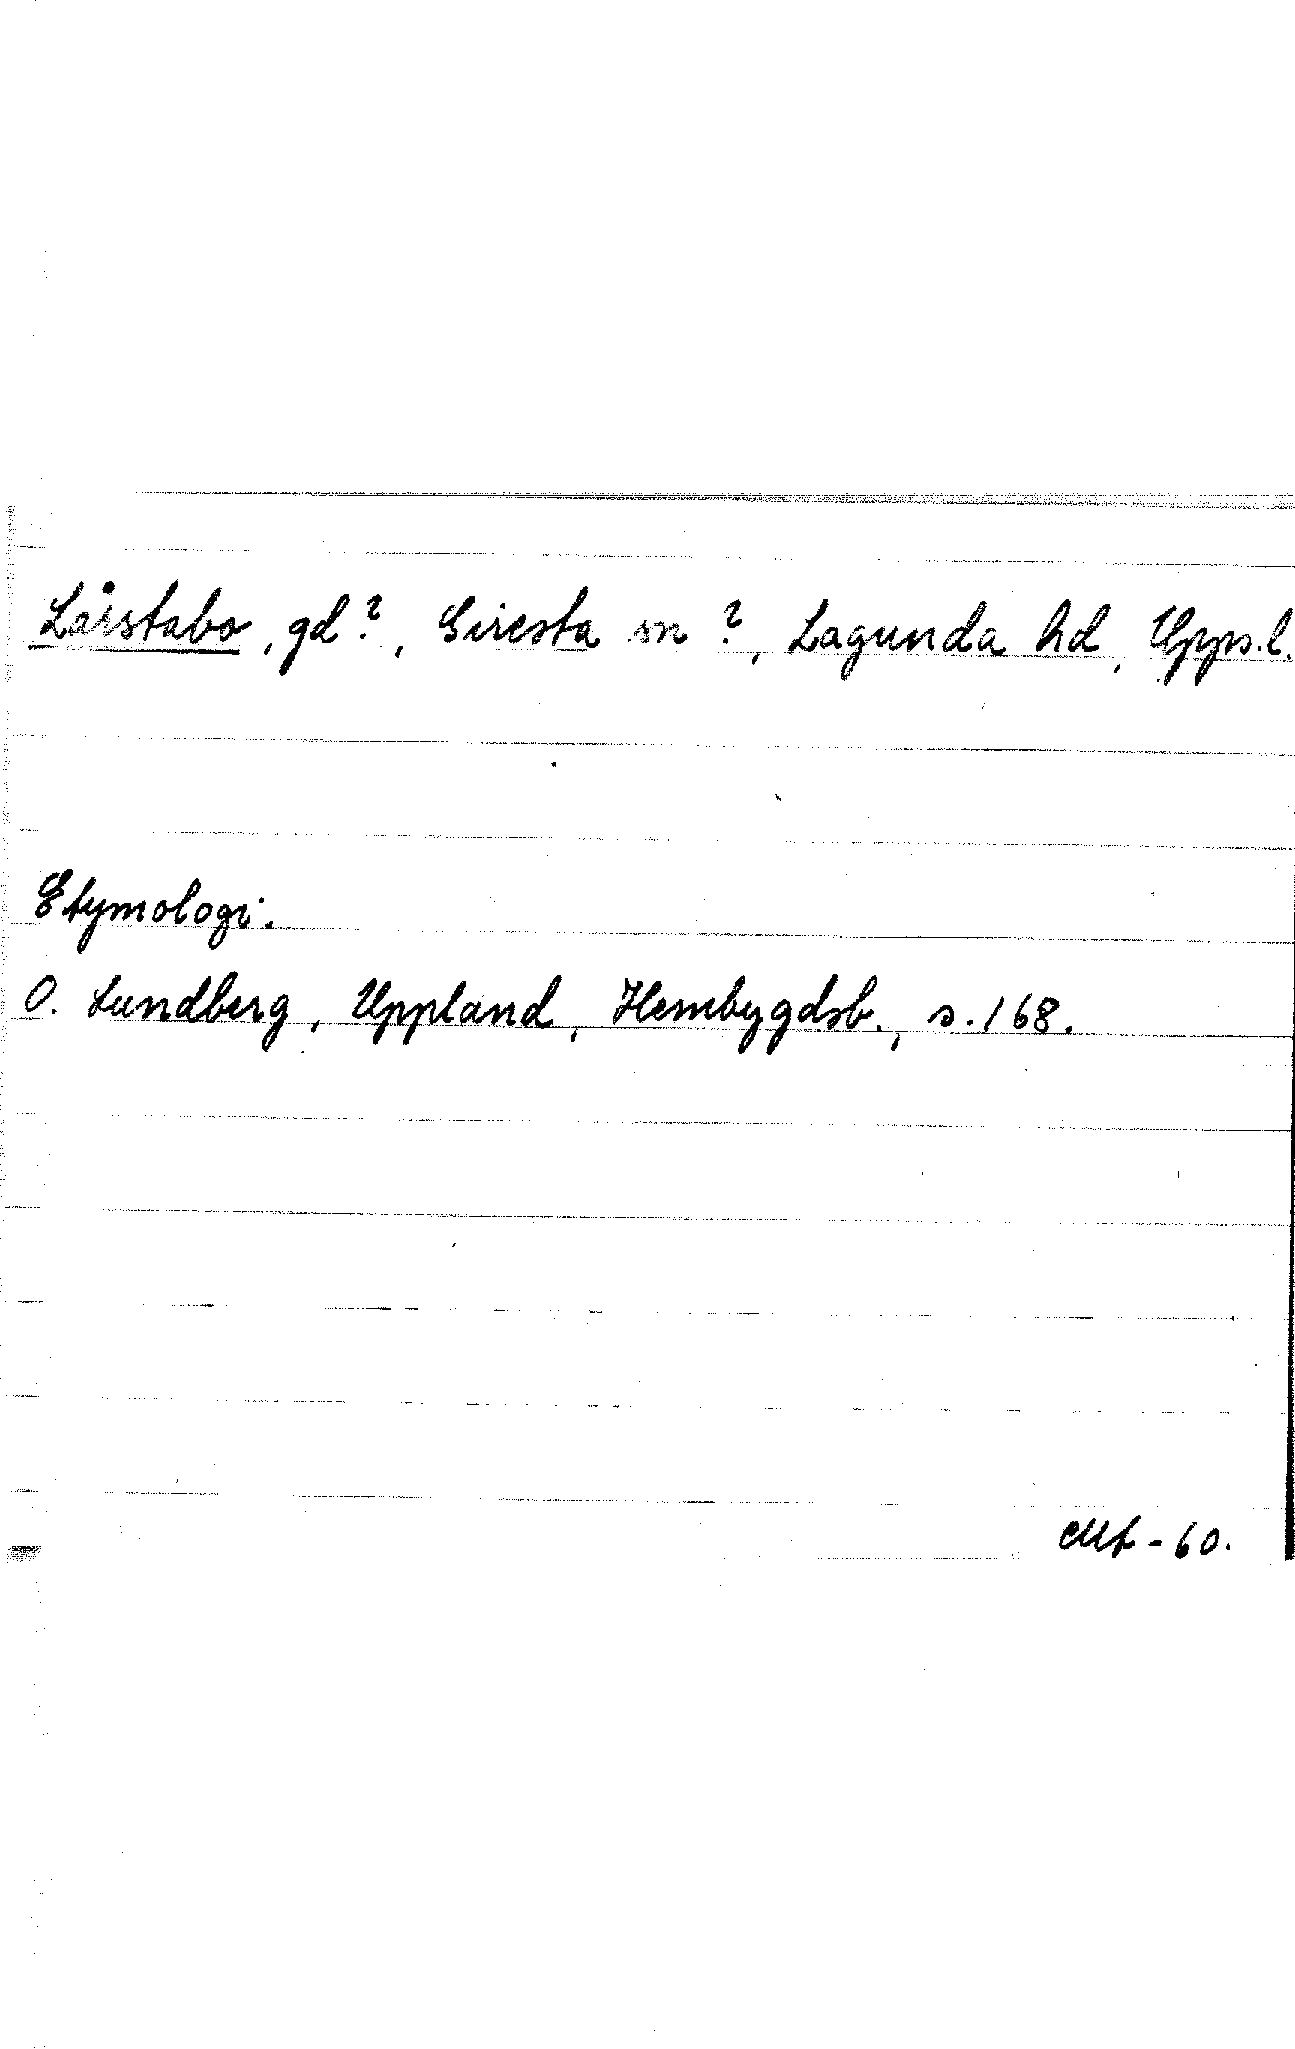 Lårstabo, gd?, Giresta sn?, Lagunda hd, Upps.l.
Etymologi.
O. Lundberg, Uppland, Hembygdsb., s.168.
Mt-60.